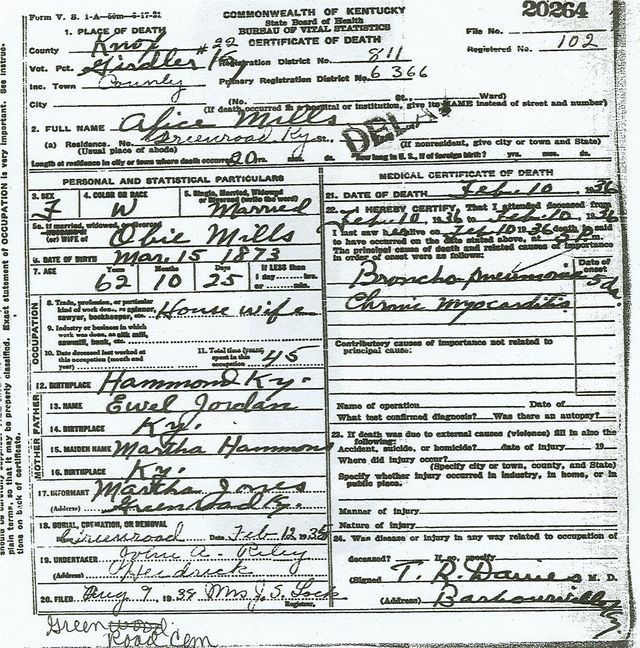 Form V. S. 1-A
COMMONWEALTH OF KENTUCKY
State Board of Health
BUREAU OF VITAL STATISTICS
CERTIFICATE OF DEATH
20264
File No.
Registered No. 102
1. PLACE OF DEATH
County Knox
Vot. Pct. Girdler
Registration District No. 811
Inc. Town County
Primary Registration District No. 6366
City (No. St., Ward)
(If death occurred in a hospital or institution, give its NAME instead of street and number)
2. FULL NAME Alice Mills
DELAY
(a) Residence. No. Greenroad Ky St.,
(Usual place of abode)
(If nonresident, give city or town and State)
Length of residence in city or town where death occurred 20 yrs. mos. ds. How long in U. S., if of foreign birth? yrs. mos. ds.
PERSONAL AND STATISTICAL PARTICULARS
3. SEX F
4. COLOR OR RACE W
5. Single, Married, Widowed or Divorced (write the word) Married
5a. If married, widowed, or divorced
(or) WIFE of Obie Mills
6. DATE OF BIRTH Mar. 15 1873
7. AGE Years 62 Months 10 Days 25 If LESS than 1 day hrs. or min.
OCCUPATION
8. Trade, profession, or particular kind of work done, as spinner, sawyer, bookkeeper, etc. House wife
9. Industry or business in which work was done, as silk mill, sawmill, bank, etc.
10. Date deceased last worked at this occupation (month and year)
11. Total time (years) spent in this occupation 45
12. BIRTHPLACE Hammond Ky.
FATHER
13. NAME Ewel Jordan
14. BIRTHPLACE Ky.
MOTHER
15. MAIDEN NAME Martha Hammons
16. BIRTHPLACE Ky.
17. INFORMANT Martha Jones
(Address) Greenroad Ky.
18. BURIAL, CREMATION, OR REMOVAL
Greenroad Date Feb 12 1936
19. UNDERTAKER John A. Riley
(Address)
20. FILED Aug 9, 1939 Mrs J. S. Lock
Registrar.
MEDICAL CERTIFICATE OF DEATH
21. DATE OF DEATH Feb. 10, 1936
22. I HEREBY CERTIFY, That I attended deceased from
Feb. 10, 1936 to Feb. 10, 1936
I last saw her alive on Feb 10 1936 death is said
to have occurred on the date stated above, at
The principal cause of death and related causes of importance
in order of onset were as follows:
Date of onset
Broncho pneumonia 5 da.
Chronic myocarditis
Contributory causes of importance not related to
principal cause:
Name of operation Date of
What test confirmed diagnosis? Was there an autopsy?
23. If death was due to external causes (violence) fill in also the
following:
Accident, suicide, or homicide? date of injury 19
Where did injury occur?
(Specify city or town, county, and State)
Specify whether injury occurred in industry, in home, or in
public place.
Manner of injury
Nature of injury
24. Was disease or injury in any way related to occupation of
deceased? If so, specify
(Signed) T. R. Davies M. D.
(Address) Barbourville
Green
Road Cem
plain terms, so that it may be properly classified. Exact statement of OCCUPATION is very important. See instructions on back of certificate.